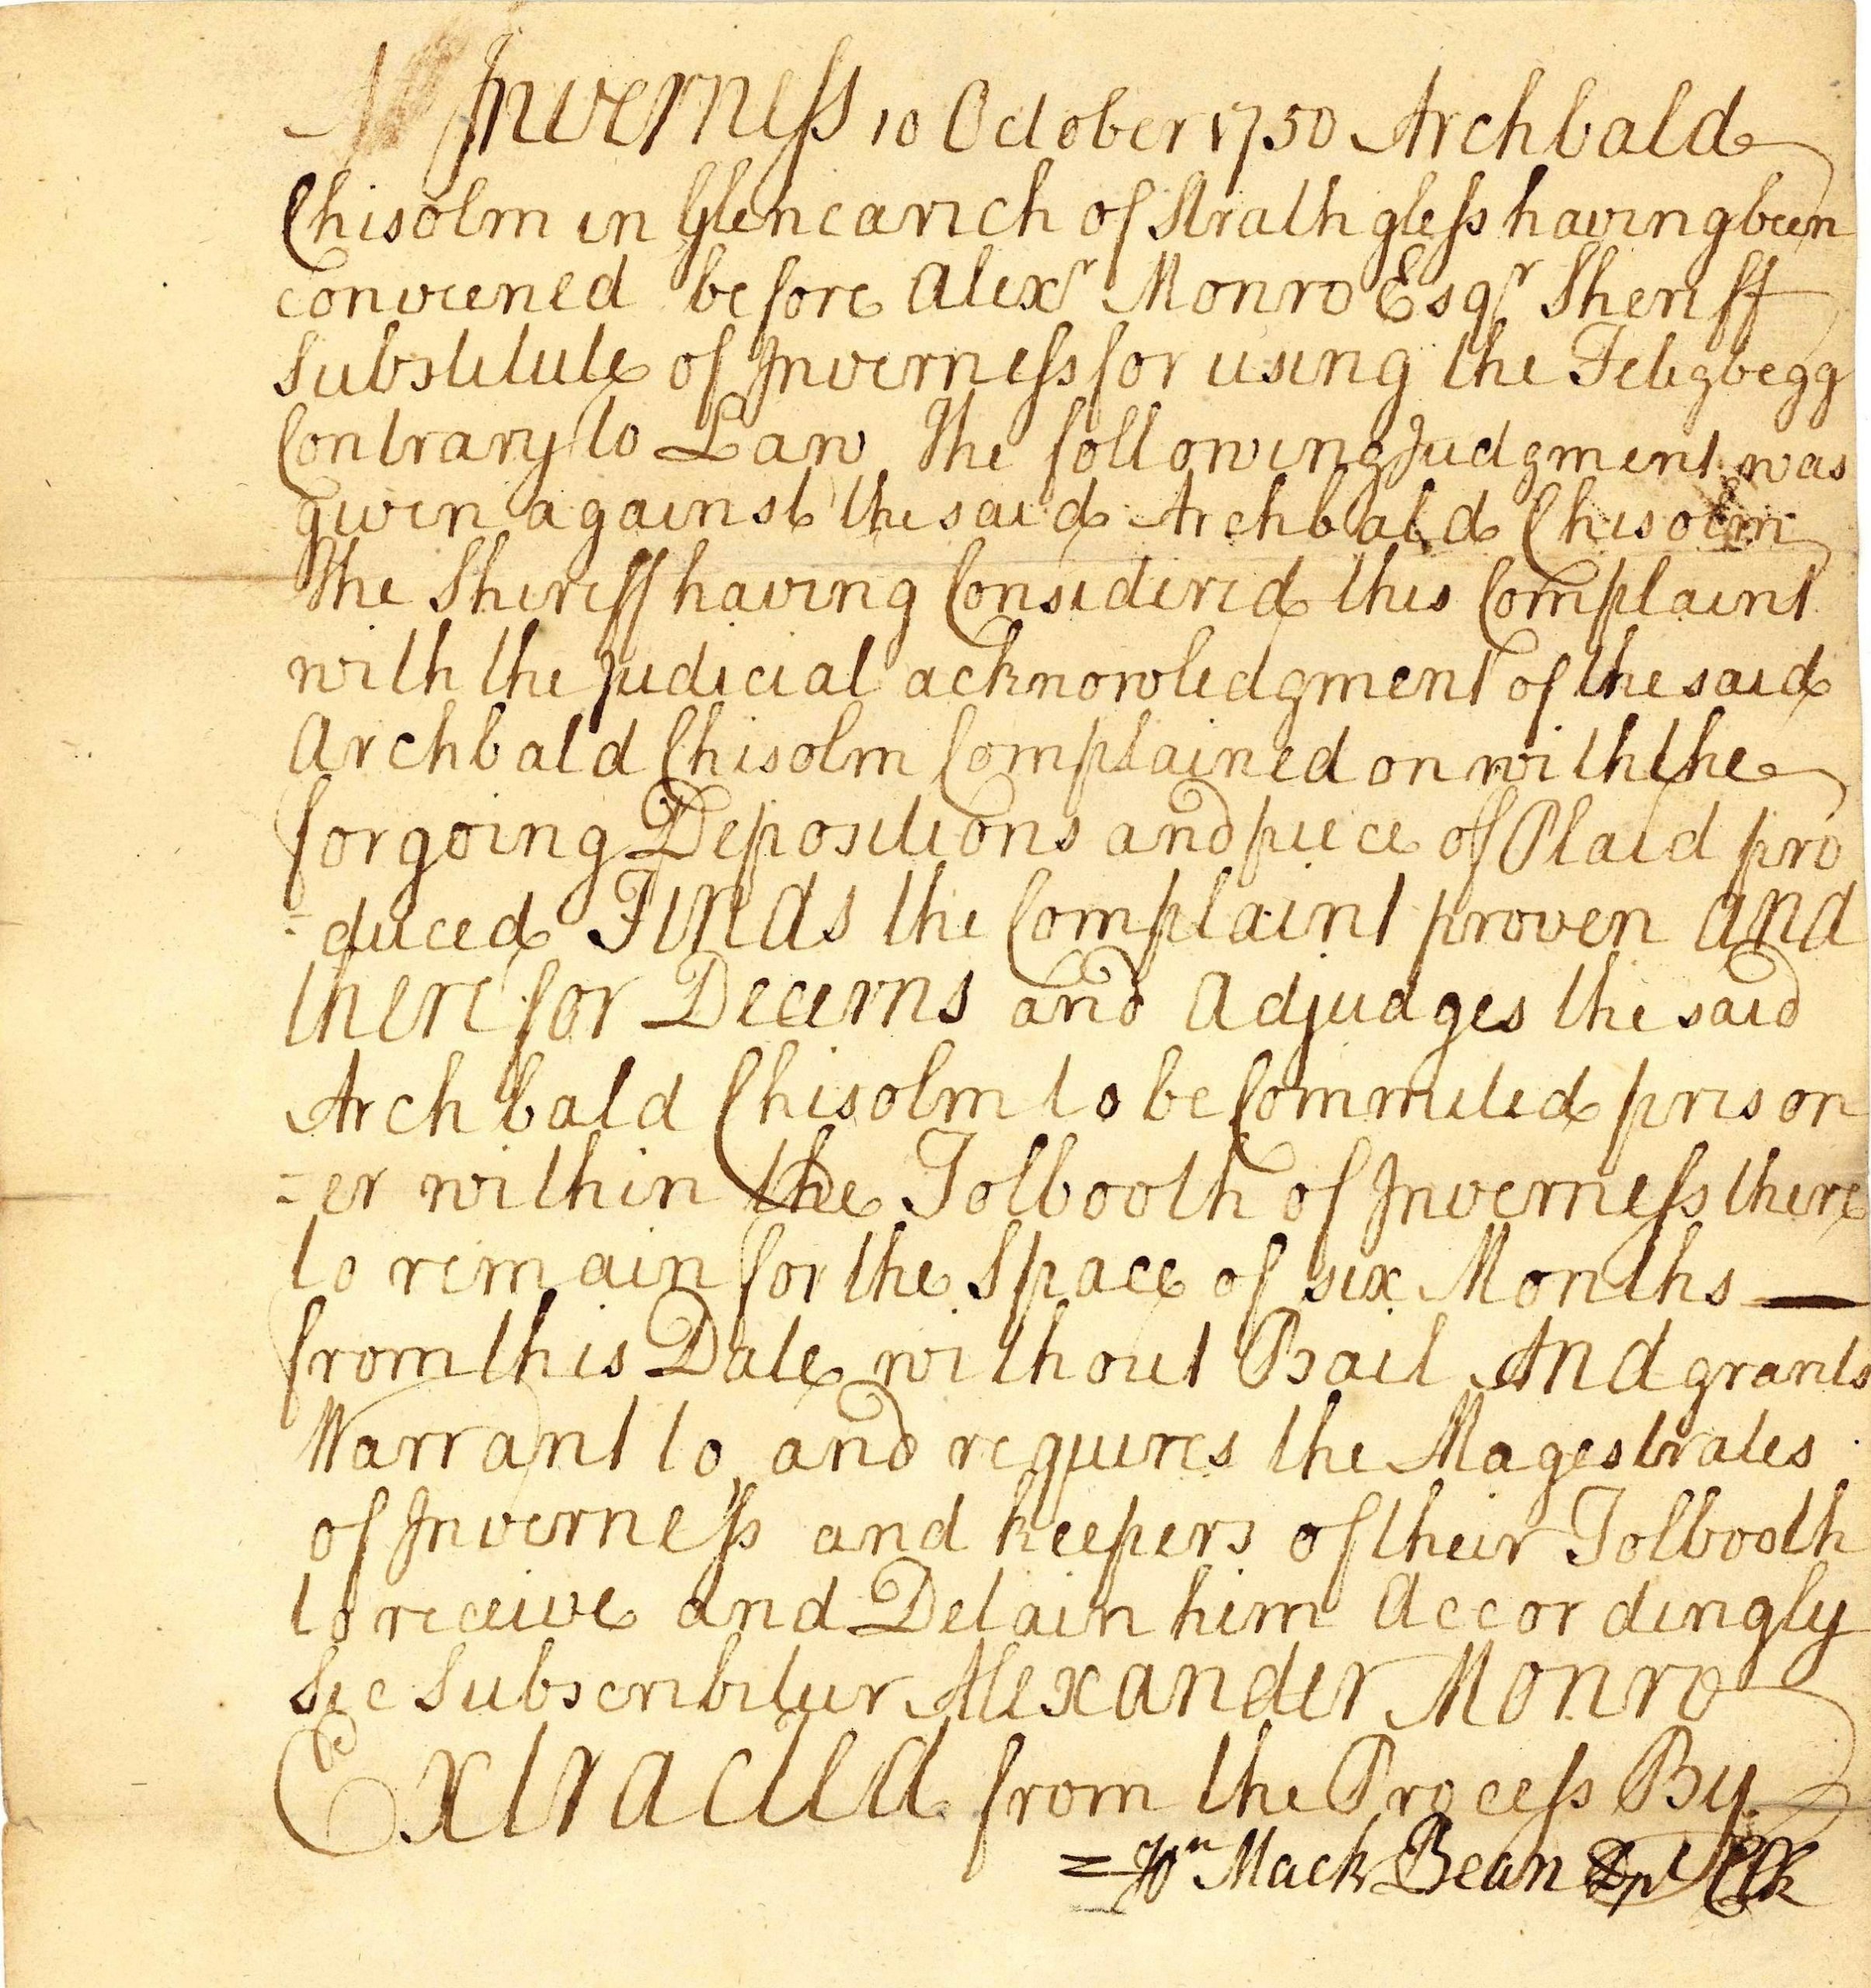 At Inverness 10 October 1750 Archbald
Chisolm in Glencarich of Strathgless having been
conveened before Alexr Monro Esqr Sheriff
Substitute of Inverness for using the Feligbegg
Contrary to Law The following Judgment was
given against the said Archbald Chisolm
The Sheriff having Considered this Complaint
with the Judicial acknowledgment of the said
Archbald Chisolm Complained on with the
forgoing Depositions and piece of Plaid pro
=duced Finds the Complaint proven and
therefor Decerns and Adjudges the said
Archbald Chisolm to be Commited prison
=er within the Tolbooth of Inverness there
to remain for the Space of six Months —
from this Date without Bail And grants
Warrant to and requires the Magestrates
of Inverness and keepers of their Tolbooth
to receive and Detain him Accordingly
Sic Subscribitur Alexander Monro
Extracted from the Process By
=Jon Mack Bean Dpt Clk